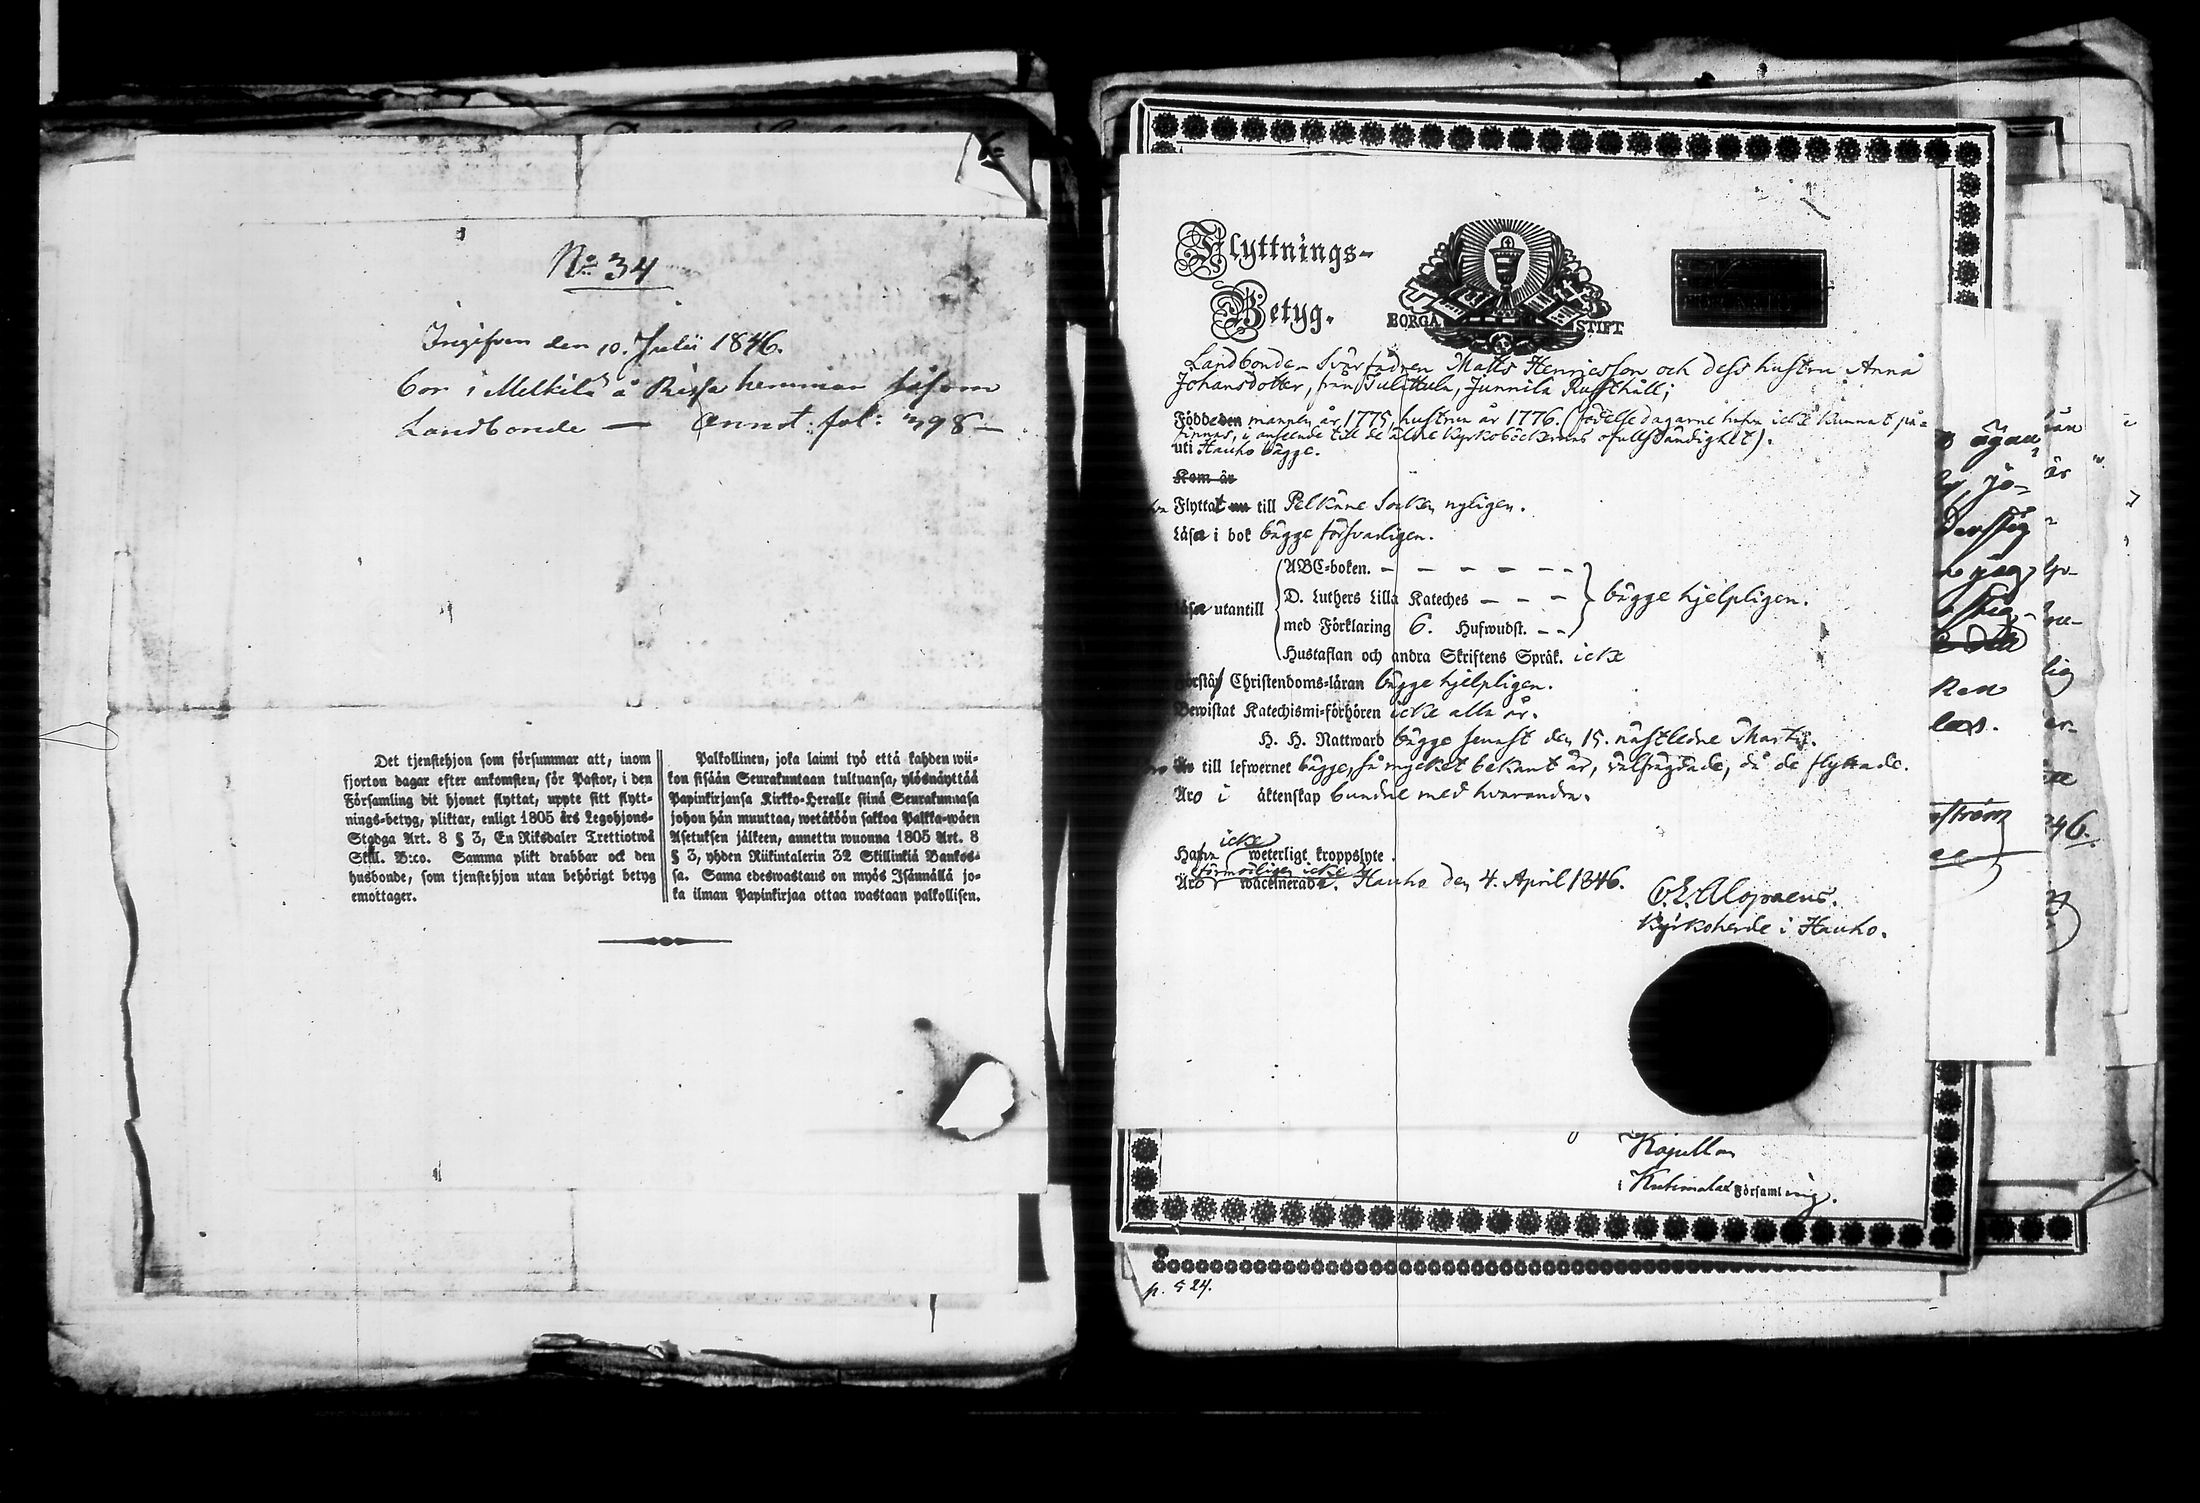 No 34
Ingifven den 10. Julii 1846.
bor i Melkilä å Rissa hemman såsom
Landbonde — Annot. fol: 398 —
Det tjenstehjon som försummar att, inom
fjorton dagar efter ankomsten, för Pastor, i den
Församling dit hjonet flyttat, uppte sitt flytt-
nings-betyg, pliktar, enligt 1805 års Legohjons-
Stadga Art. 8 § 3, En Riksdaler Trettiotwå
Skill. B:co. Samma plikt drabbar ock den
husbonde, som tjenstehjon utan behörigt betyg
emottager.
Palkollinen, joka laimi työ että kahden wii-
kon sisään Seurakuntaan tultuansa, ylösnäyttää
Papinkirjansa Kirkko-Heralle siinä Seurakunnasa
johon hän muuttaa, wetäköön sakkoa Palkka-wäen
Asetuksen jälkeen, annettu wuonna 1805 Art. 8
§ 3, yhden Riikintalerin 32 Skillinkiä Bankos-
sa. Sama edeswastaus on myös Isännällä jo-
ka ilman Papinkirjaa ottaa wastaan palkollisen.
Flyttnings-
Betyg.
BORGÅ STIFT
Landbonde-Svärfadren Matts Henricsson och dess hustru Anna
Johansdotter, från Tulittula, Junnila Rusthåll;
Födde den mannen år 1775, hustrun år 1776. (födelsedagarne hafva icke kunnat på-
finnas, i anseende till de äldre kyrkoböckernas ofullständighet).
uti Hauho bägge.
Kom år
Flyttat nu till Pelkäne Socken nyligen.
Läsa i bok bägge försvarligen.
Läsa utantill
ABC-boken. — — — — — —
D. Luthers Lilla Kateches — — —
med Förklaring 6. Hufwudst. — —
bägge hjelpligen.
Hustaflan och andra Skriftens Språk. icke
Förstå Christendoms-läran bägge hjelpligen.
Bewistat Katechismi-förhören icke alla år.
H. H. Nattward bägge senast den 15. nästledne Martii.
Är till lefwernet bägge, så mycket bekant är, välfrägdade, då de flyttade.
Äro i äktenskap bundne med hvarandra.
Hafva icke weterligt kroppslyte.
Äro förmodligen icke waccinerade. Hauho den 4. April 1846.
C. E. Alopaeus.
Kyrkoherde i Hauho.
Kapellan
i Kuhmalax Församling.
p. 524.